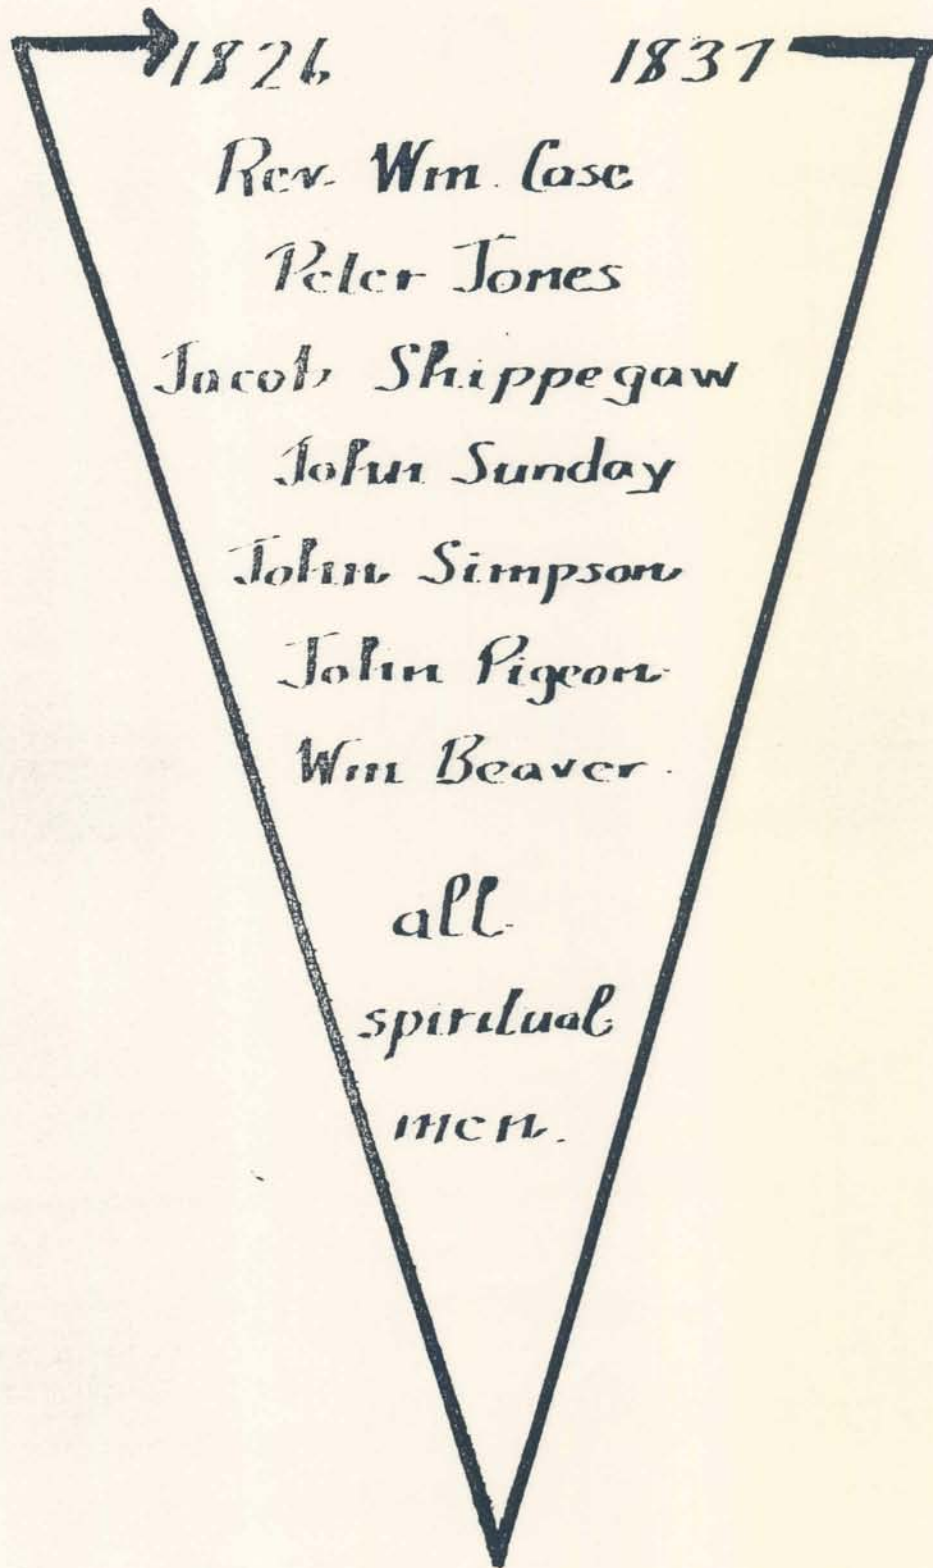 1826 1837
Rev. Wm. Case
Peter Jones
Jacob Shippegaw
John Sunday
John Simpson
John Pigeon
Wm Beaver.
all
spiritual
men.